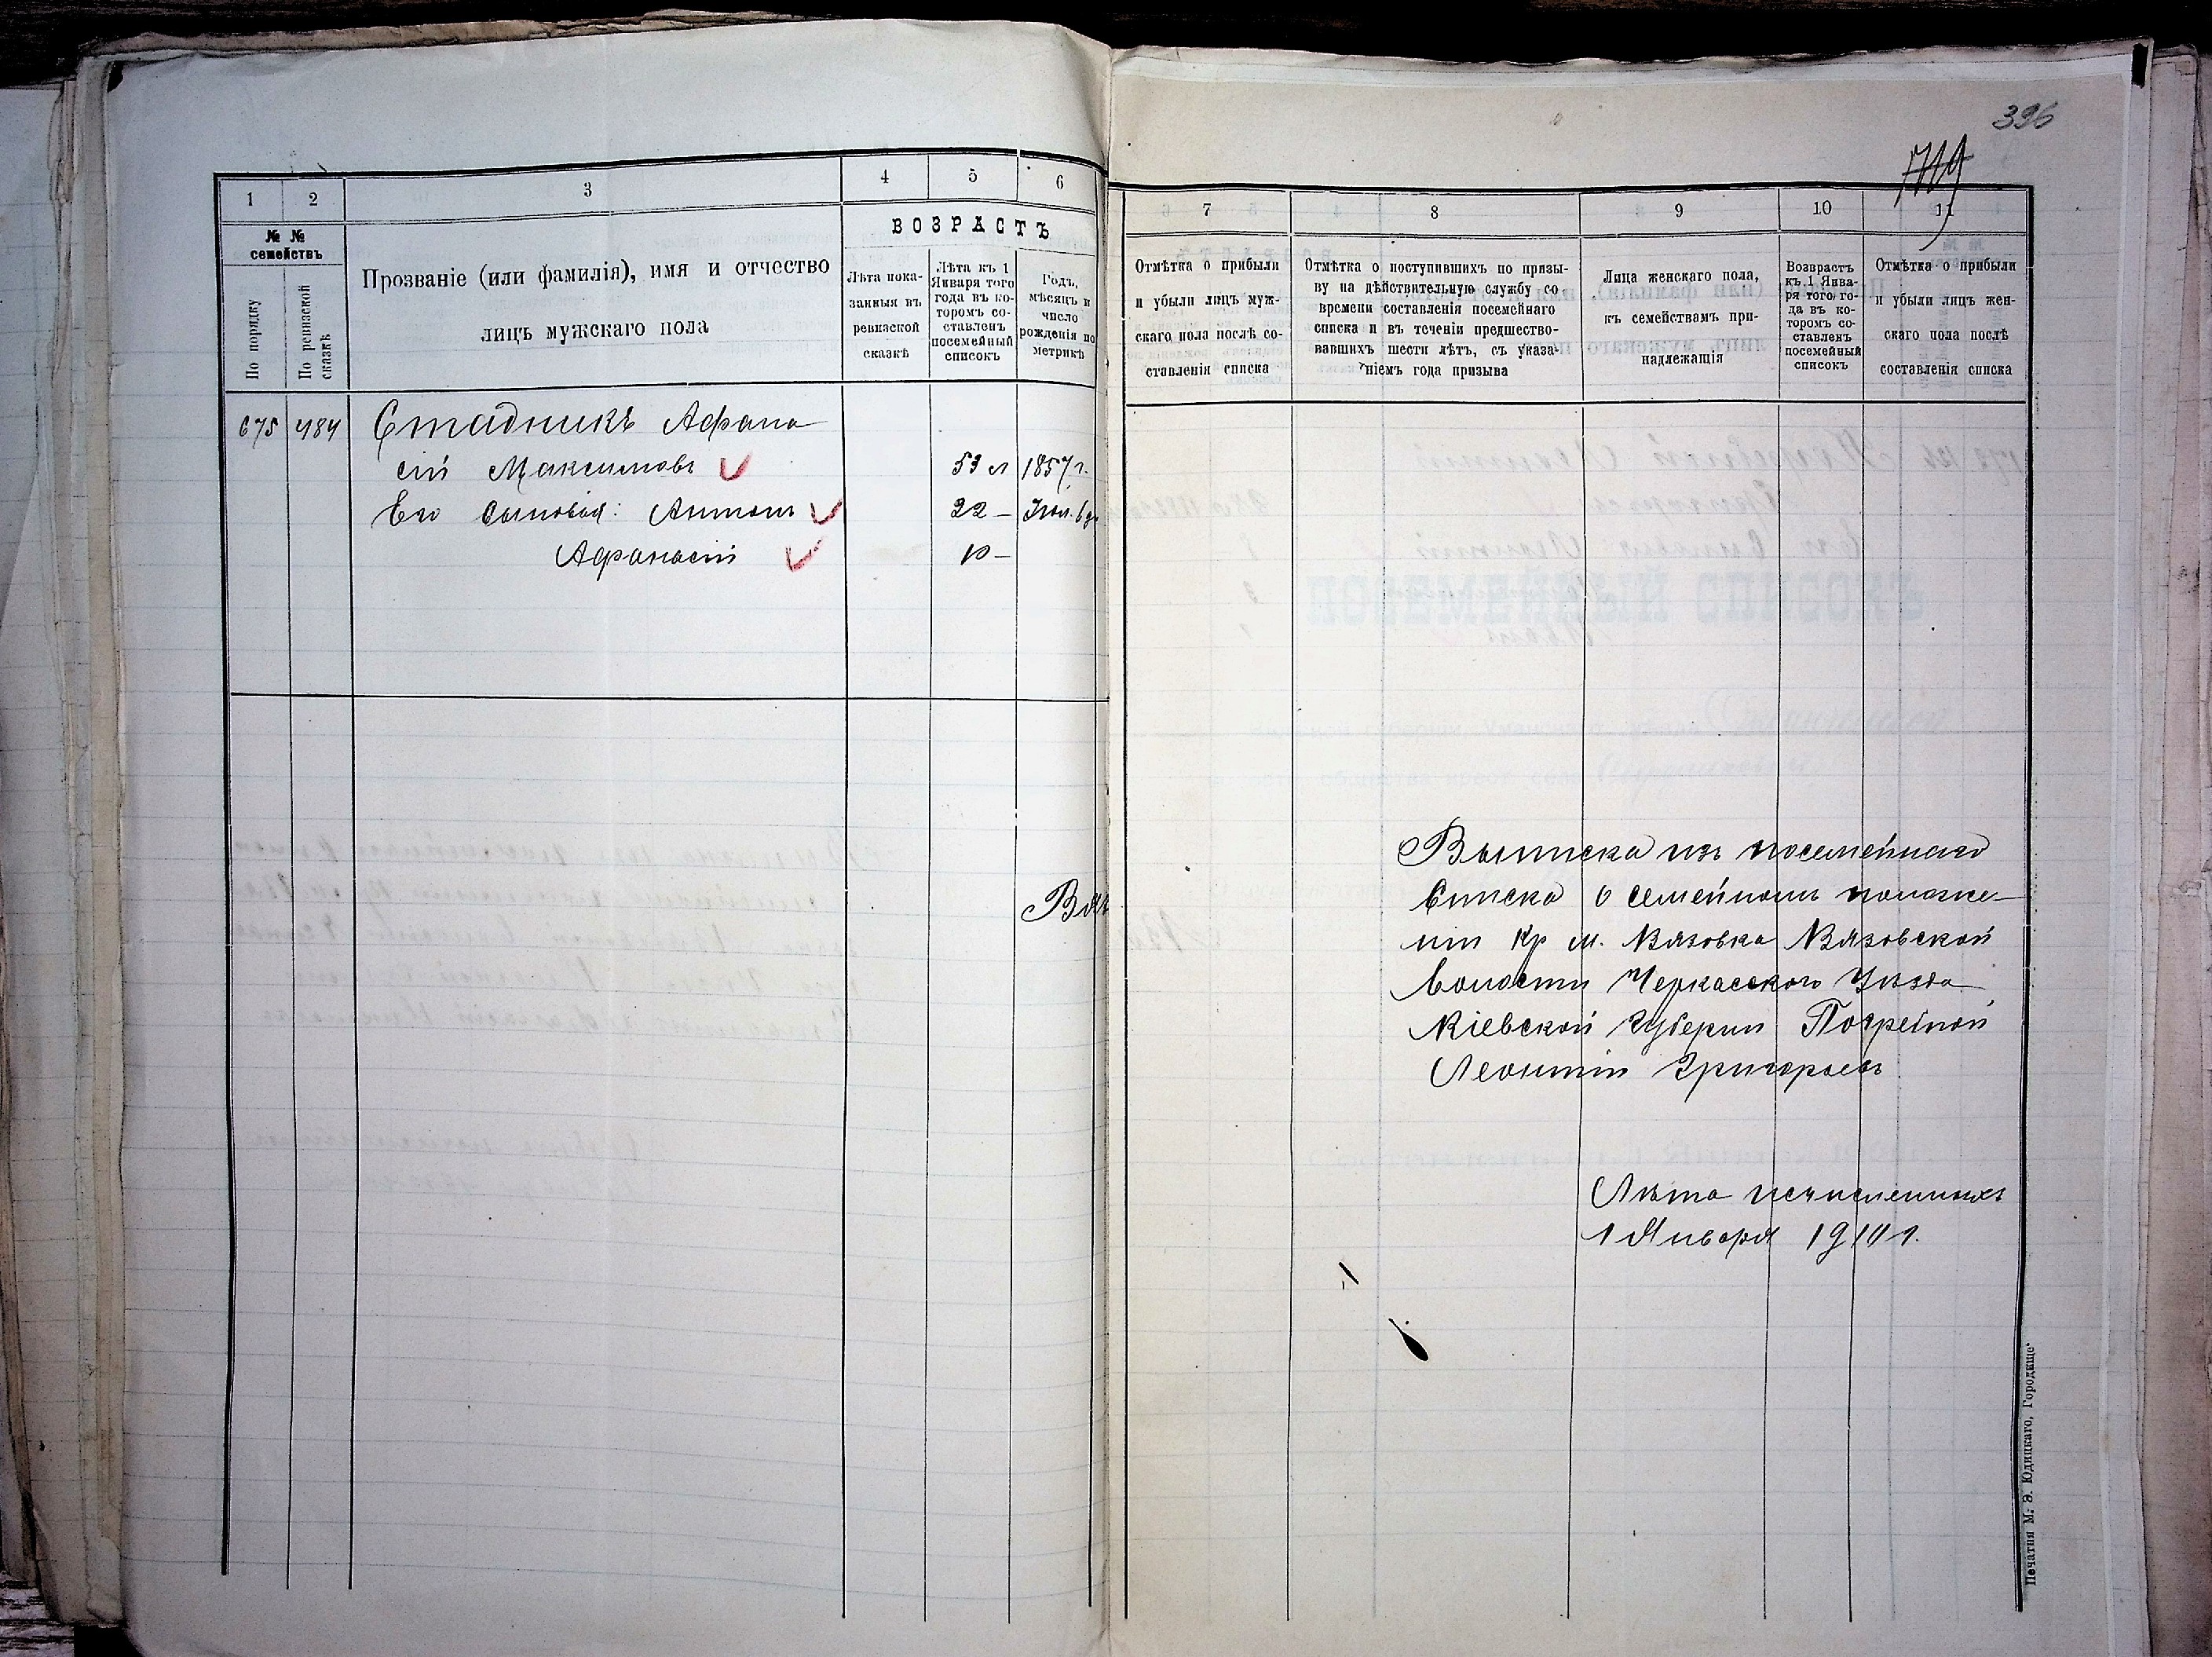 396
719
1
2
3
4
5
6
№ №
семействъ
По порядку
По ревизской сказкѣ
Прозваніе (или фамилія), имя и отчество
лицъ мужскаго пола
ВОЗРАСТЪ
Лѣта пока-
занныя въ
ревизской
сказкѣ
Лѣта къ 1
Января того
года въ ко-
торомъ со-
ставленъ
посемейный
списокъ
Годъ,
мѣсяцъ и
число
рожденія по
метрикѣ
675 484 Стадникъ Афана
сій Максимовъ 53 л 1857 г.
Его сыновья: Антонъ 22 –
Афанасій 10 –
7
8
9
10
11
Отмѣтка о прибыли
и убыли лицъ муж-
скаго пола послѣ со-
ставленія списка
Отмѣтка о поступившихъ по призы-
ву на дѣйствительную службу со
времени составленія посемейнаго
списка и въ теченіи предшество-
вавшихъ шести лѣтъ, съ указа-
ніемъ года призыва
Лица женскаго пола,
къ семействамъ при-
надлежащія
Возврастъ
къ 1 Янва-
ря того го-
да въ ко-
торомъ со-
ставленъ
посемейный
списокъ
Отмѣтка о прибыли
и убыли лицъ жен-
скаго пола послѣ
составленія списка
Выписка изъ посемейнаго
Списка о семейномъ положе-
ніи Кр м. Вязовка Вязовской
Волости Черкасского Уѣзда
Кіевской Губерніи Погрѣбной
Леонтій Григорьевъ
Лѣта исчисленныхъ
1 Января 1910 г.
Печатня М. Э. Юдицкаго, Городище